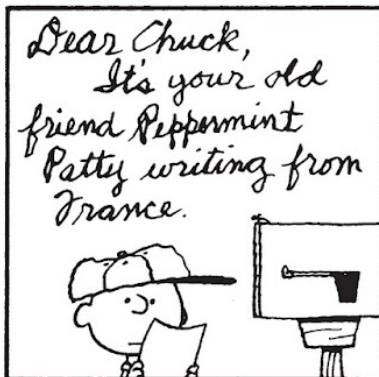 Dear Chuck,
It's your old
friend Peppermint
Patty writing from
France.